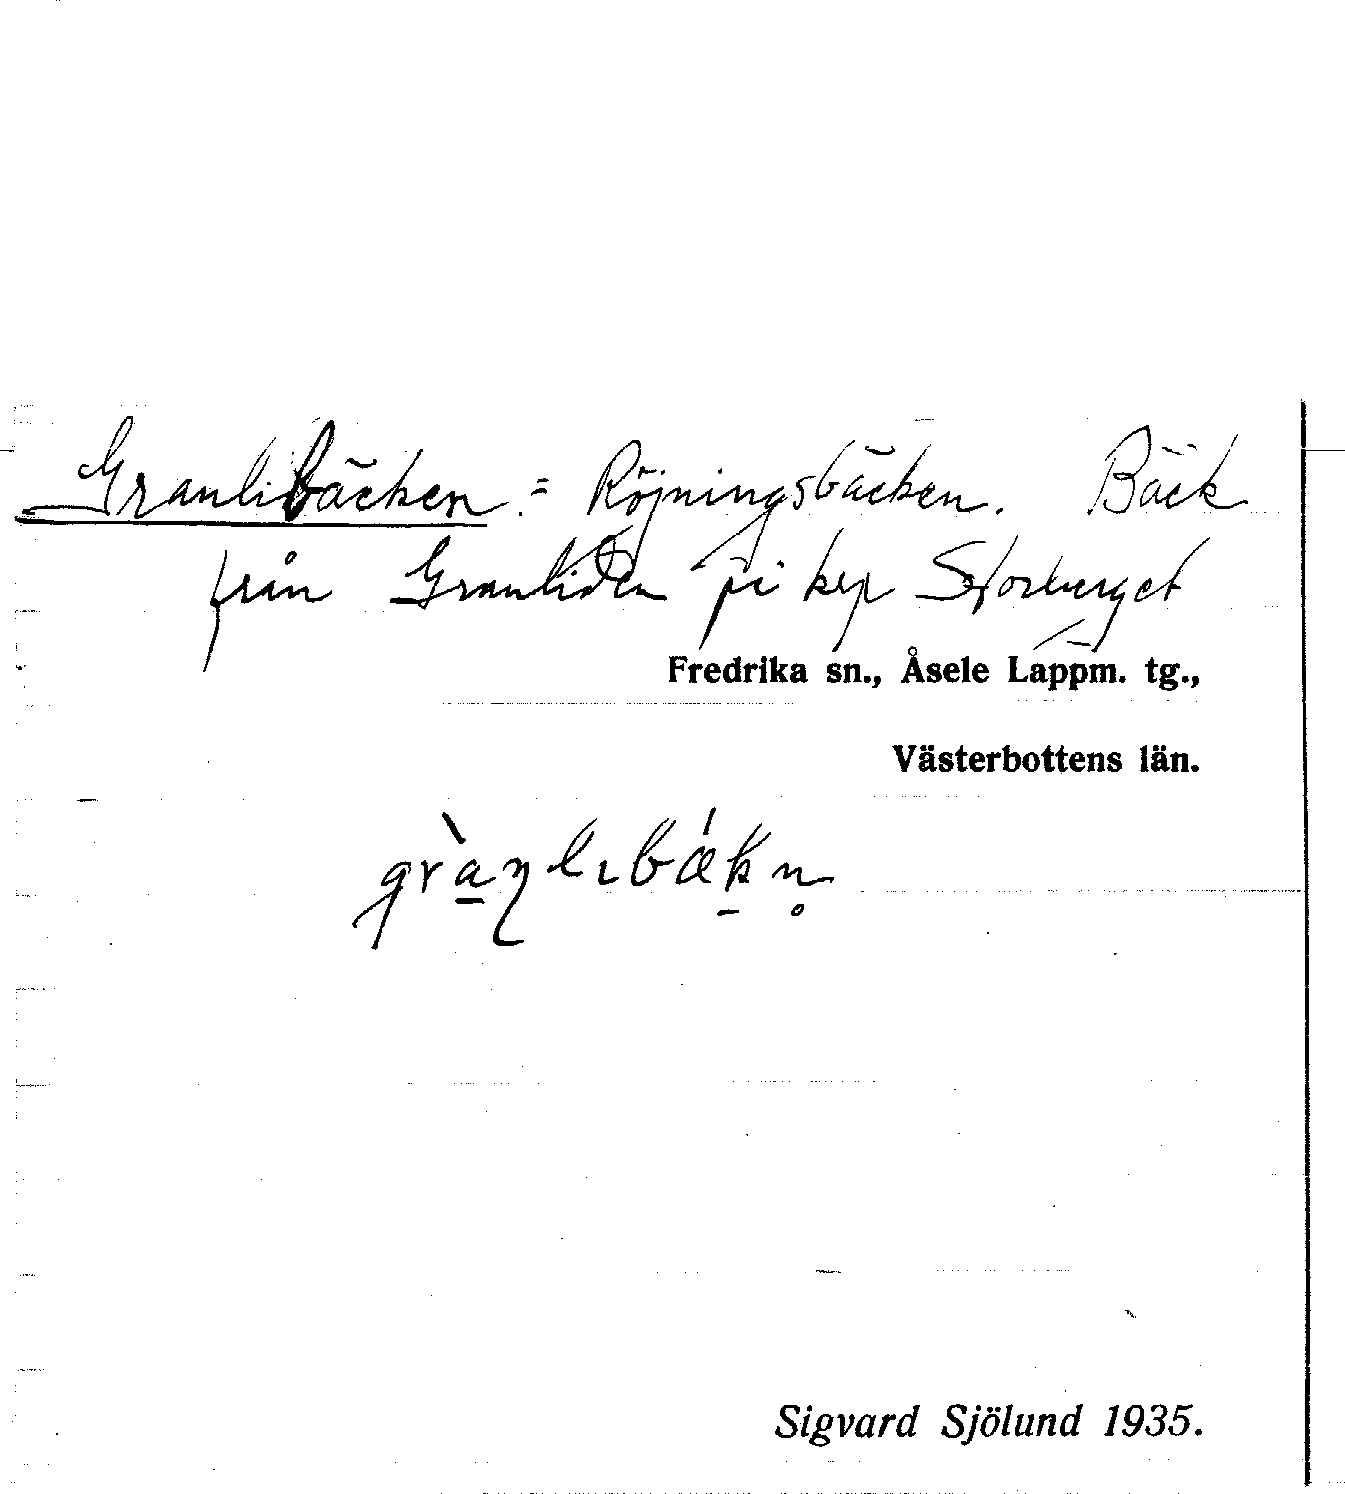 Granlibäcken = Röjningsbäcken. Bäck
från Granliden på krp Storberget
Fredrika sn., Åsele Lappm. tg.,
Västerbottens län.
Sigvard Sjölund 1935.